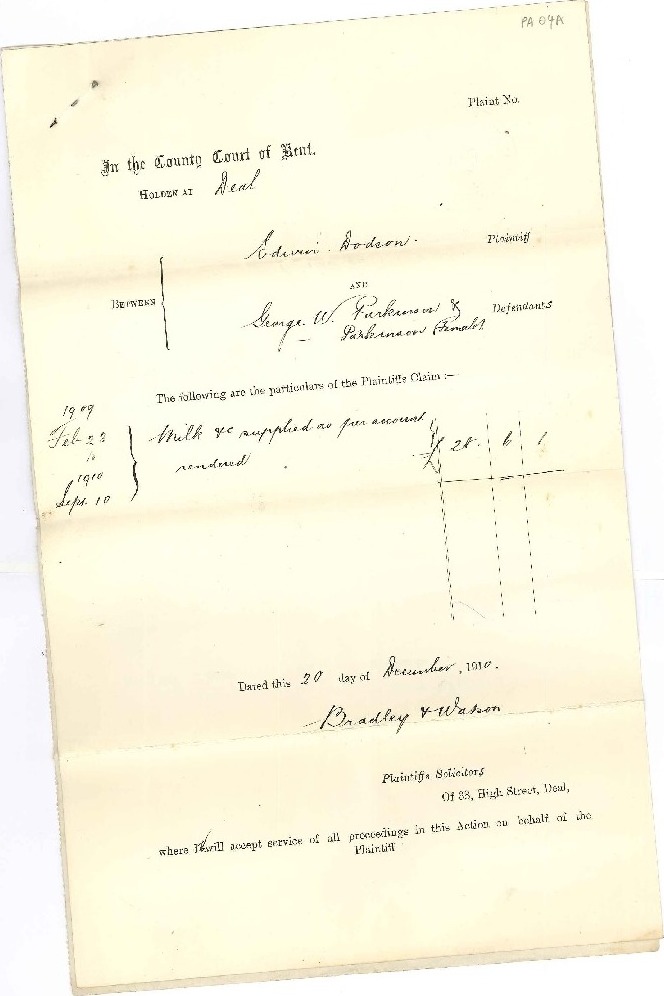 PA 04A
Plaint No.
In the County Court of Kent.
HOLDEN AT Deal
Edwin Dodson. Plaintiff
BETWEEN
AND
George. W. Parkinson & Defendants
Parkinson (Female)
The following are the particulars of the Plaintiffs Claim :—
1909
Feb 22
to
1910
Sept. 10
Milk &c supplied as per account
rendered
£ 28 6 1
Dated this 20 day of December, 1910.
Bradley & Watson
Plaintiffs Solicitors
Of 33, High Street, Deal,
where will accept service of all proceedings in this Action on behalf of the
Plaintiff